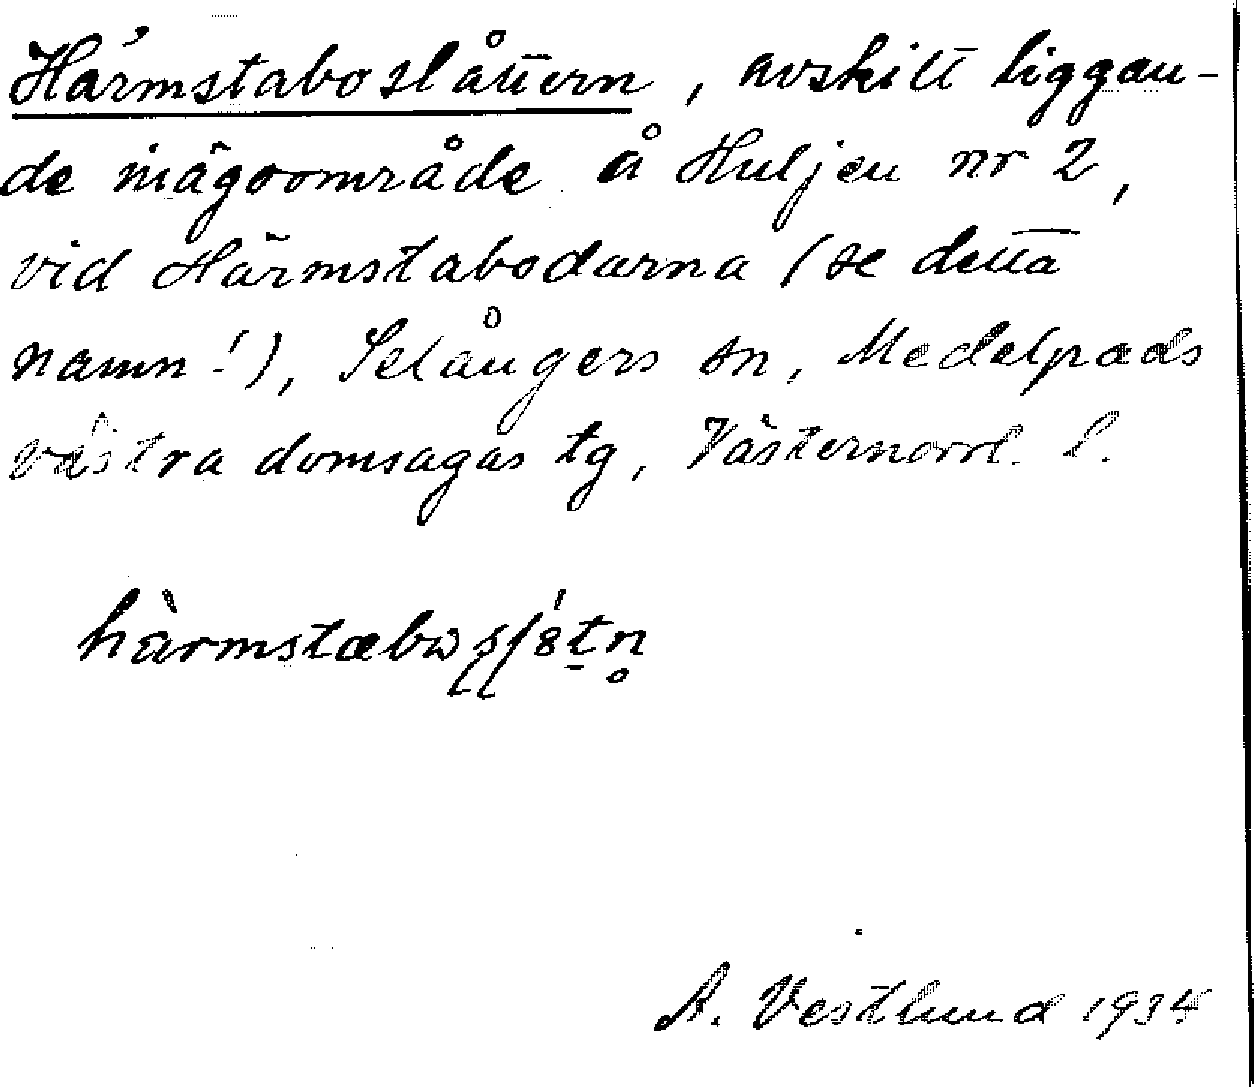 Härmstaboslåttern, avskilt liggan-
de inägoområde å Huljen nr 2,
vid Härmstabodarna (se detta
namn!), Selångers sn, Medelpads
västra domsagas tg, Västernorrl. l.
A. Vestlund 1934